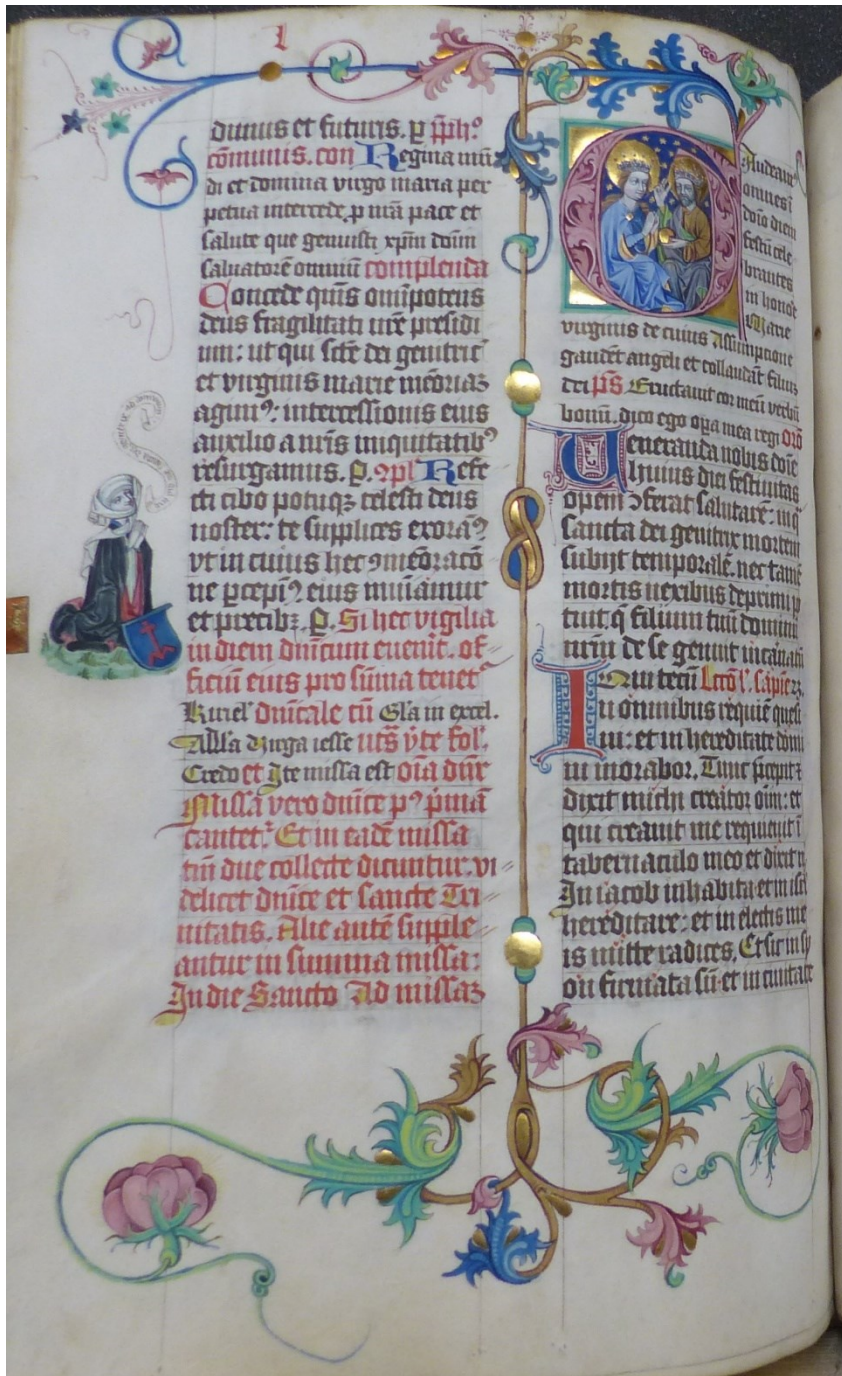 L
diuuis et futuris. ꝑ p̄ph.º
cōmunis. con Regina mū
di et domina virgo maria per
petua intercede ꝓ nr̄a pace et
salute que genuisti xp̄m dom̄
saluatorē omniū complenda
Concede quis̄ om̄ipotens
deus fragilitati nr̄e presidi
um: ut qui scē dei genitric̄
et virginis marie mēoriaꝫ
agimꝰ: intercessionis eius
auxilio a nr̄is iniquitatibꝰ
resurgamus. P. ꝯpl̄ Refe
cti cibo potuqꝫ celesti deus
noster: te supplices exoramꝰ
vt in cuius hec ꝯmēoracō
ne ꝑcepimꝰ eius muniamur
et precibꝫ. P. Si hec vigilia
in diem dn̄icum euenit. of
ficiū eius pro sūma tenetur
Kiriel' dn̄icale cū Gl̄a in excel.
All̄a Virga iesse ut s̄ vͭte fol.
Credo et Ite missa est oīa dn̄ie
Missa vero dn̄ice pꝰ pͥmā
cantetur. Et in eadē missa
tm̄ due collecte dicuntur. vi
delicet dn̄ice et sancte Tri
nitatis. Alie autē supple
antur in summa missa:
In die Sancto Ad missaꝫ
Gaudeamꝰ
omnes ī
dn̄o diem
festū cele
brantes
in honore
Marie
virginis de cuius Assumptione
gaudēt angeli et collaudāt filiuꝫ
dei p̄s Eructauit cor meū verbū
bonū. dico ego oꝑa mea regi Orō
Ueneranda nobis dn̄e
huius diei festiuitas
opem ꝯferat salutarē: in q̄
sancta dei genitrix mortem
subijt temporalē. nec tamē
mortis nexibus deprimi po
tuit q̄ filium tuū dominū
nr̄m de se genuit incarnatū
Qui tecū Lectō l'. sapie
In omnibus requiē quesi
ui: et in hereditate domi
ni morabor. Tunc p̄cepit ⁊
dixit michi creator oīm: et
qui creauit me requieuit ī
tabernaculo meo et dixit m
In iacob inhabita et in isrl
hereditare: et in electis me
is mitte radices. Et sic in sy
on firmata sū et in ciuitate